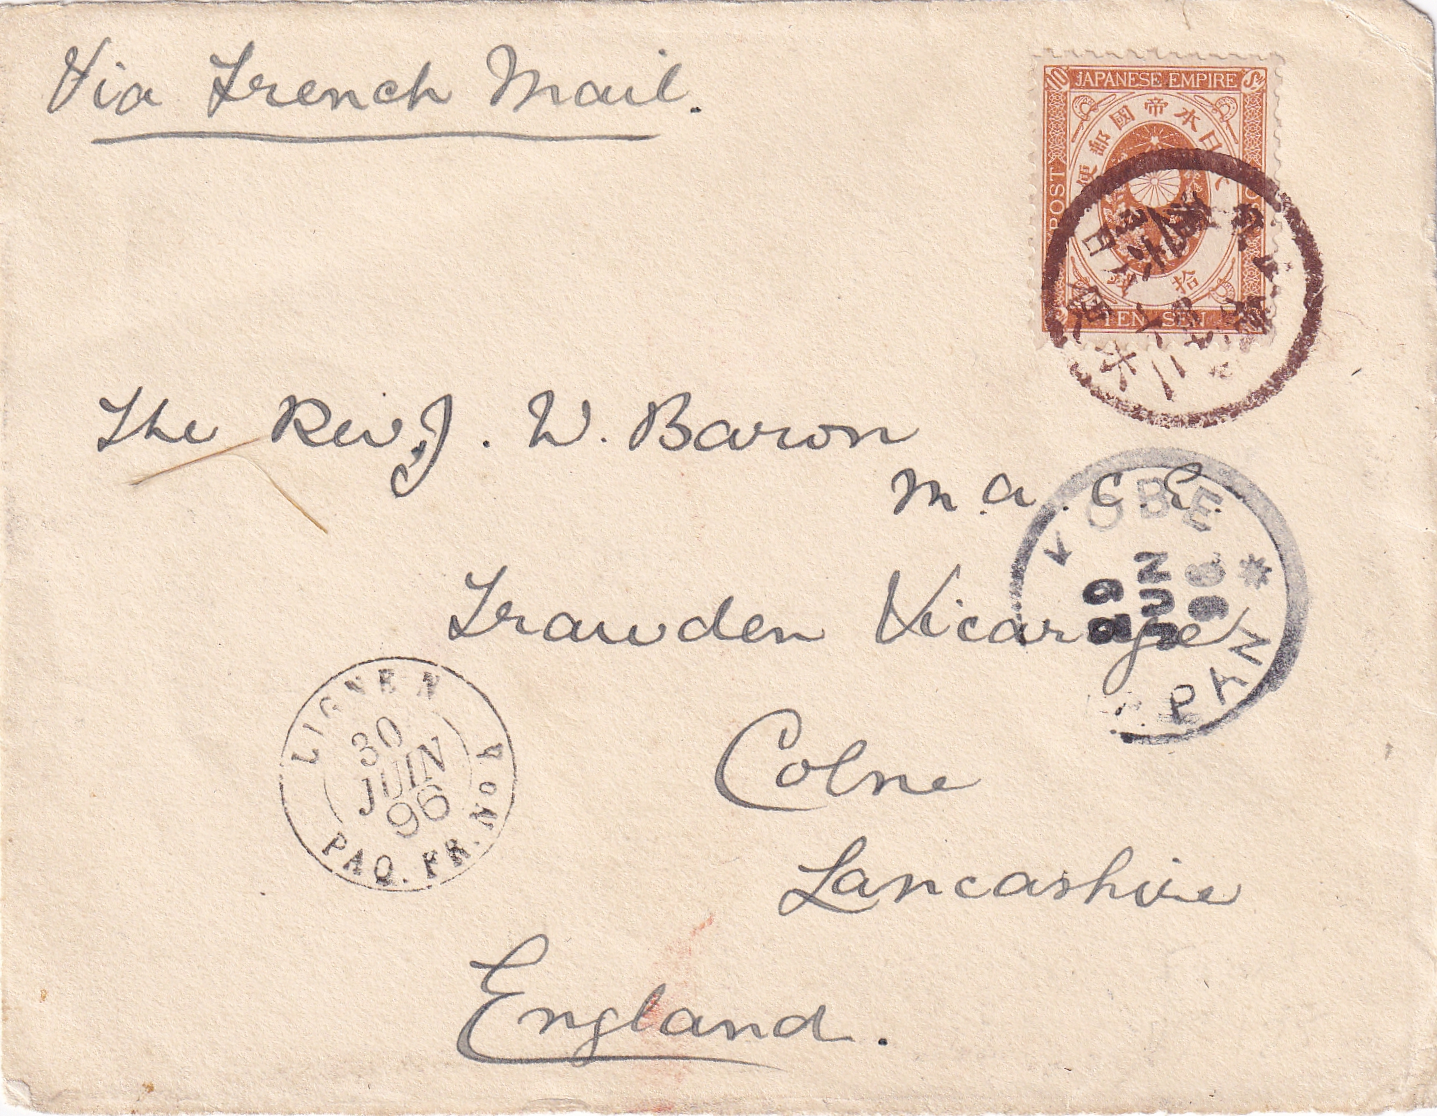 Via French Mail.
10 JAPANESE EMPIRE Sn
大日本帝國郵便
POST
拾銭
TEN SEN
The Rev. J. W. Baron
M.A. C.E.
KOBE
29
JUN
96
JAPAN
Trawden Vicarage
Colne
Lancashire
England.
LIGNE N
30
JUIN
96
PAQ. FR. No